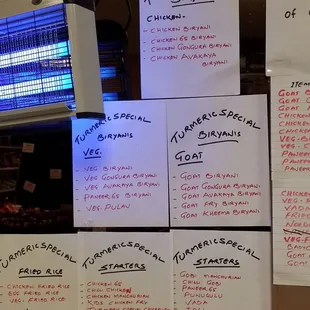 CHICKEN-
- CHICKEN BIRYANI
- CHICKEN 65 BIRYANI
- CHICKEN GONGURA BIRYANI
- CHICKEN AVAKAYA BIRYANI
TURMERIC SPECIAL
BIRYANIS
VEG.
- VEG BIRYANI
- VEG GONGURA BIRYANI
- VEG AVAKAYA BIRYANI
- PANEER 65 BIRYANI
- VEG-PULAV
TURMERIC SPECIAL
BIRYANIS
GOAT
- GOAT BIRYANI
- GOAT GONGURA BIRYANI
- GOAT AVAKAYA BIRYANI
- GOAT FRY BIRYANI
- GOAT KHEEMA BIRYANI
TURMERIC SPECIAL
FRIED RICE
- CHICKEN FRIED RICE
- EGG FRIED RICE
- VEG. FRIED RICE
TURMERIC SPECIAL
STARTERS
- CHICKEN 65
- CHILLI CHICKEN
- CHICKEN MANCHURIAN
TURMERIC SPECIAL
STARTERS
- GOBI MANCHURIAN
- CHILLI GOBI
- PANEER 65
- PUNUGULU
- VADA
of
ITEM
GOAT
GOAT
GOAT
CHICKEN
CHICKEN
VEG-B
VEG-
PANEER
PANEER
CHICKEN
VEG-
VADA
FRIED
VEG-F
GOAT
GOAT